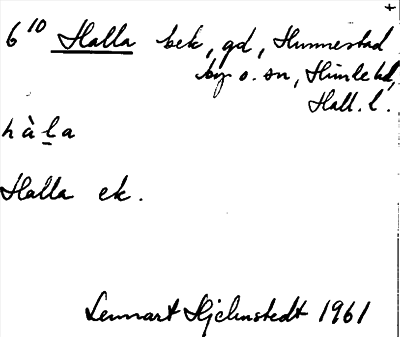 6¹⁰ Halla bek, gd, Hunnestad
by o. sn, Himle hd,
Hall. l.
hàḻa
Halla ek.
Lennart Hjelmstedt 1961